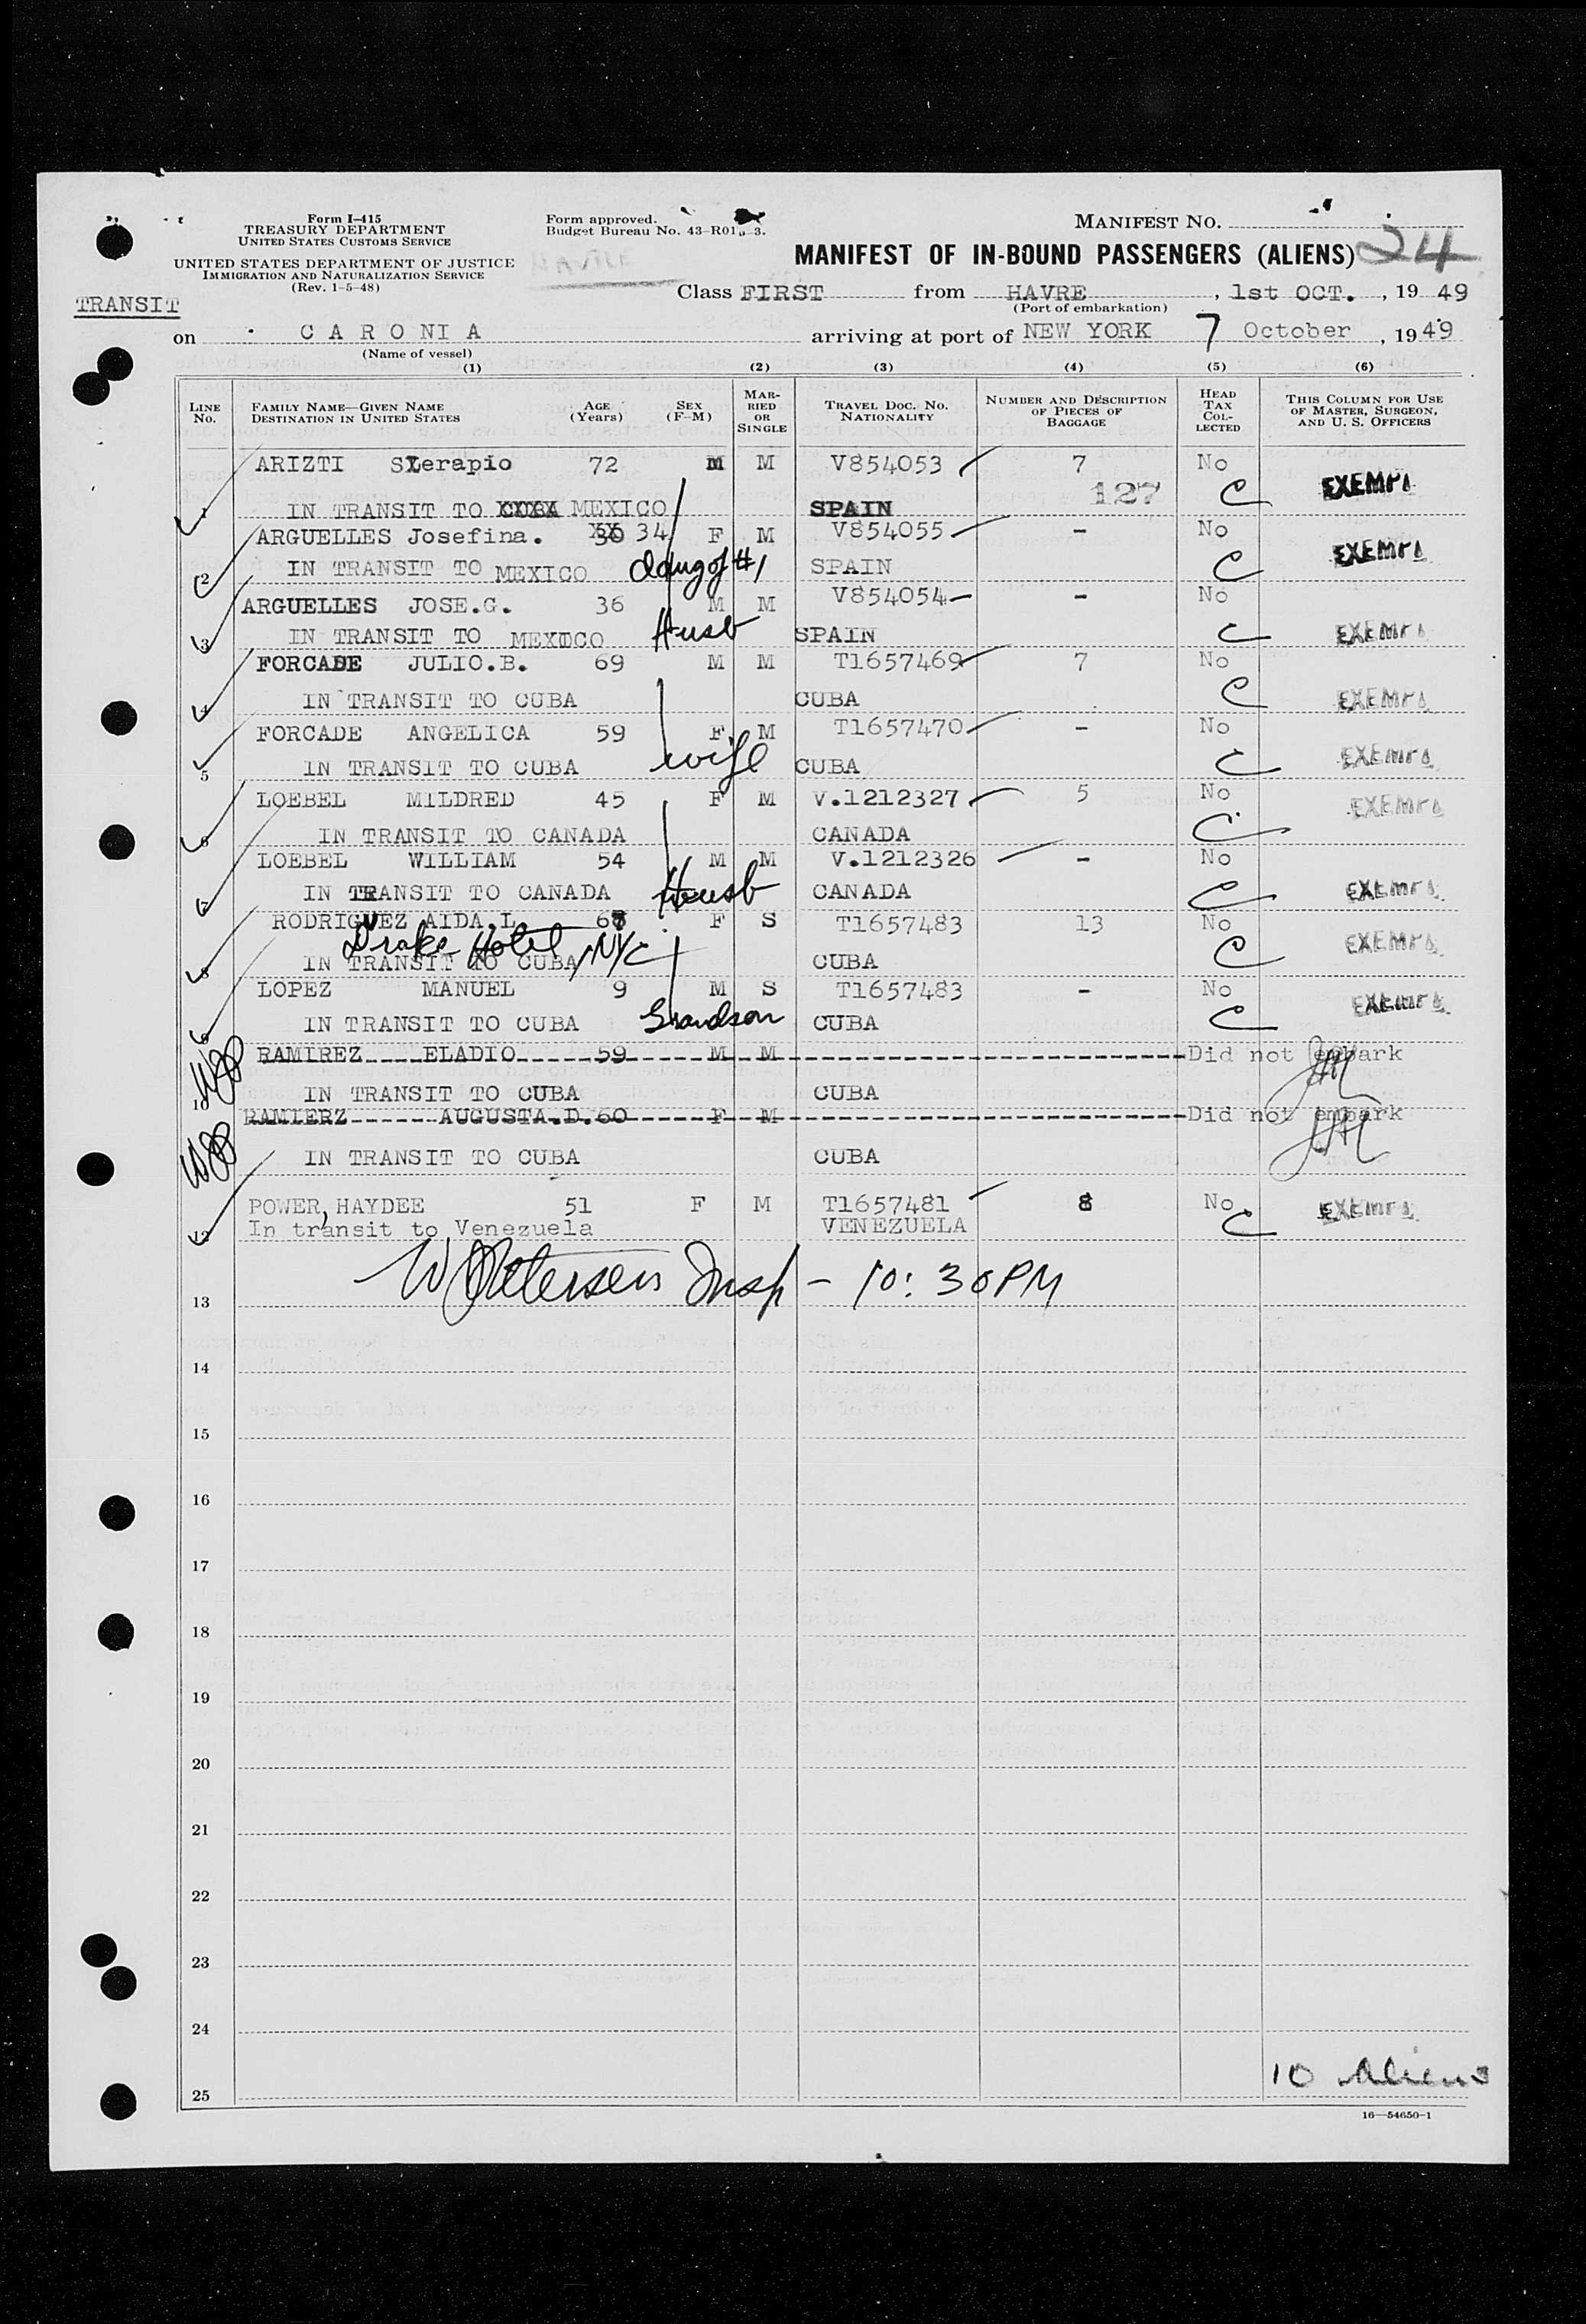 Form I-415
TREASURY DEPARTMENT
UNITED STATES CUSTOMS SERVICE
UNITED STATES DEPARTMENT OF JUSTICE
IMMIGRATION AND NATURALIZATION SERVICE
(Rev. 1-5-48)
Form approved.
Budget Bureau No. 43-R01
MANIFEST NO.
MANIFEST OF IN-BOUND PASSENGERS (ALIENS) 24
TRANSIT
Class FIRST from HAVRE, 1st OCT., 1949
(Port of embarkation)
on CARONIA arriving at port of NEW YORK 7 October, 1949
(Name of vessel)
(1) (2) (3) (4) (5) (6)
LINE No. FAMILY NAME—GIVEN NAME DESTINATION IN UNITED STATES AGE (Years) SEX (F-M) MARRIED OR SINGLE TRAVEL DOC. NO. NATIONALITY NUMBER AND DESCRIPTION OF PIECES OF BAGGAGE HEAD TAX COLLECTED THIS COLUMN FOR USE OF MASTER, SURGEON, AND U. S. OFFICERS
ARIZTI Serapio 72 M M V854053 7 No
1 IN TRANSIT TO MEXICO SPAIN 127 C EXEMPT
ARGUELLES Josefina. 34 F M V854055 - No
2 IN TRANSIT TO MEXICO daug of #1 SPAIN C EXEMPT
ARGUELLES JOSE.G. 36 M M V854054 - No
3 IN TRANSIT TO MEXICO Husb SPAIN C EXEMPT
FORCADE JULIO.B. 69 M M T1657469 7 No
4 IN TRANSIT TO CUBA CUBA C EXEMPT
FORCADE ANGELICA 59 F M T1657470 - No
5 IN TRANSIT TO CUBA wife CUBA C EXEMPT
LOEBEL MILDRED 45 F M V.1212327 5 No EXEMPT
6 IN TRANSIT TO CANADA CANADA C
LOEBEL WILLIAM 54 M M V.1212326 - No
7 IN TRANSIT TO CANADA Husb CANADA C EXEMPT
RODRIGUEZ AIDA.L 68 F S T1657483 13 No
Drake Hotel, NYC
8 IN TRANSIT TO CUBA CUBA C EXEMPT
LOPEZ MANUEL 9 M S T1657483 - No
9 IN TRANSIT TO CUBA Grandson CUBA C EXEMPT
RAMIREZ ELADIO 59 M M Did not embark
10 IN TRANSIT TO CUBA CUBA
RAMIERZ AUGUSTA.D. 60 F M Did not embark
IN TRANSIT TO CUBA CUBA
POWER, HAYDEE 51 F M T1657481 8 No EXEMPT
12 In transit to Venezuela VENEZUELA C
Petersen Insp - 10:30PM
13
14
15
16
17
18
19
20
21
22
23
24
10 Aliens
25
16—54650-1